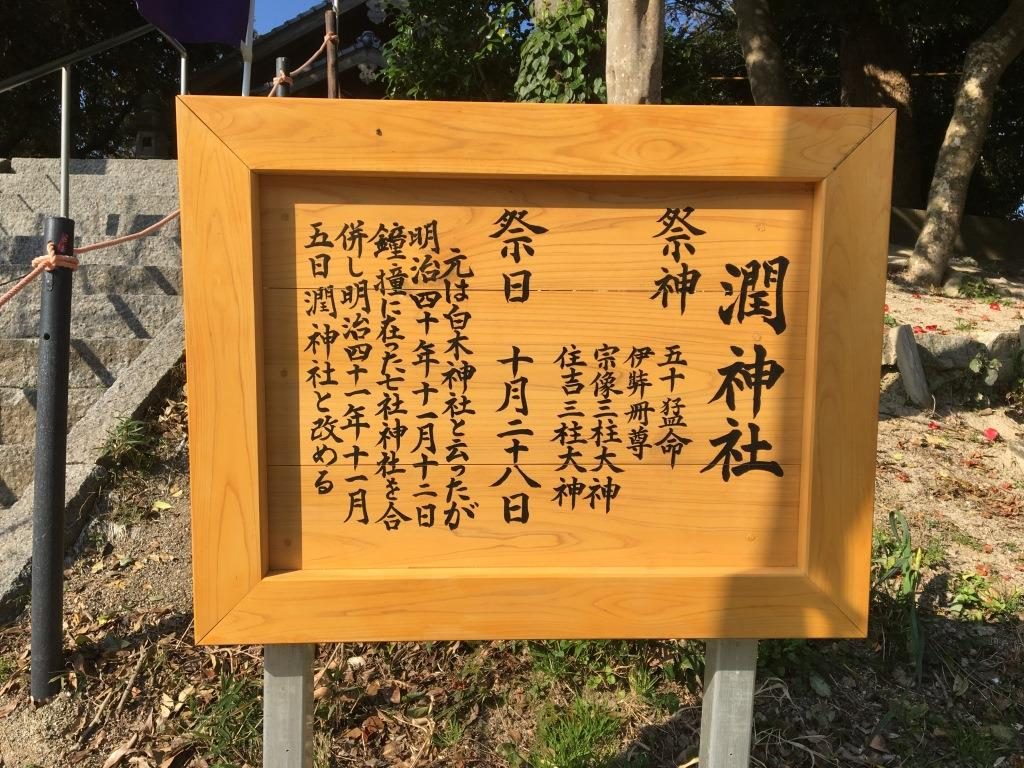 潤神社
祭神
五十猛命
伊弉冊尊
宗像三柱大神
住吉三柱大神
祭日 十月二十八日
元は白木神社と云ったが
明治四十年十一月十二日
鐘撞に在た七社神社を合
併し明治四十一年十一月
五日潤神社と改める